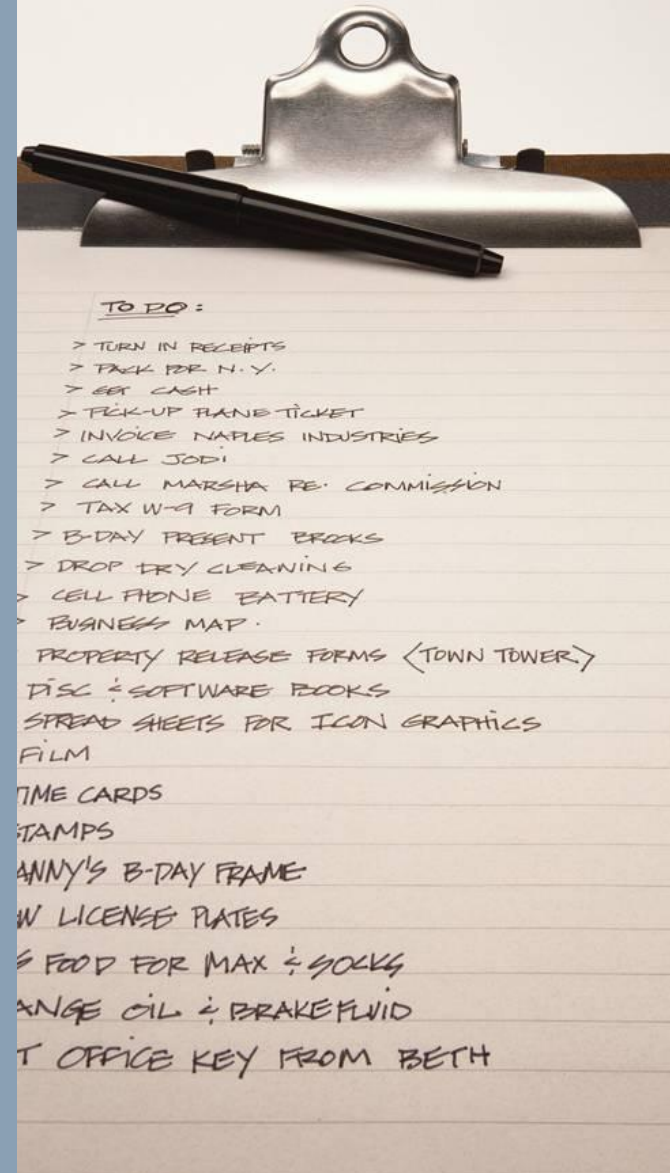 TO DO:
> TURN IN RECEIPTS
> PACK FOR N.Y.
> GET CASH
> PICK-UP PLANE TICKET
> INVOICE NAPLES INDUSTRIES
> CALL JODI
> CALL MARSHA RE. COMMISSION
> TAX W-9 FORM
> B-DAY PRESENT BROOKS
> DROP DRY CLEANING
> CELL PHONE BATTERY
> BUSINESS MAP.
PROPERTY RELEASE FORMS <TOWN TOWER>
DISC & SOFTWARE BOOKS
SPREAD SHEETS FOR ICON GRAPHICS
FILM
TIME CARDS
STAMPS
ANNY'S B-DAY FRAME
W LICENSE PLATES
FOOD FOR MAX & SOCKS
ANGE OIL & BRAKE FLUID
T OFFICE KEY FROM BETH